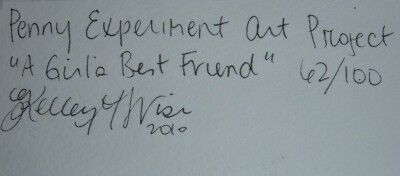 Penny Experiment Art Project
"A Girl's Best Friend" 62/100
Kelley
2010